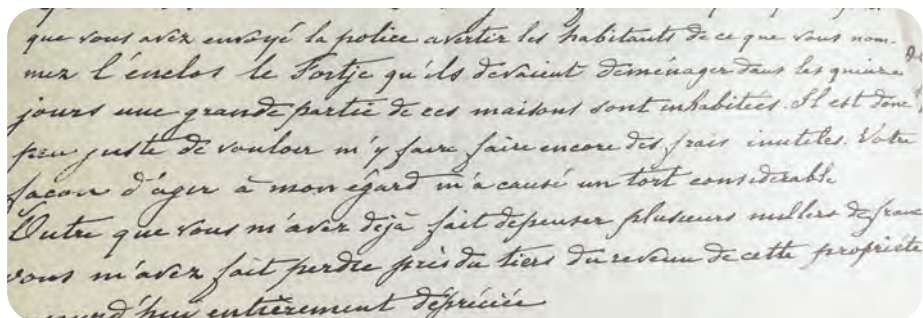 que vous avez envoyé la police avertir les habitants de ce que vous nom-
mez l'enclos le Fortje qu'ils devaient déménager dans les quinze
jours une grande partie de ces maisons sont inhabitées. Il est donc
peu juste de vouloir m'y faire faire encore des frais inutiles. Votre
façon d'agir à mon égard m'a causé un tort considerable
Outre que vous m'avez déjà fait dépenser plusieurs milliers de fran
vous m'avez fait perdre près du tiers du revenu de cette propriété
entièrement dépréciée